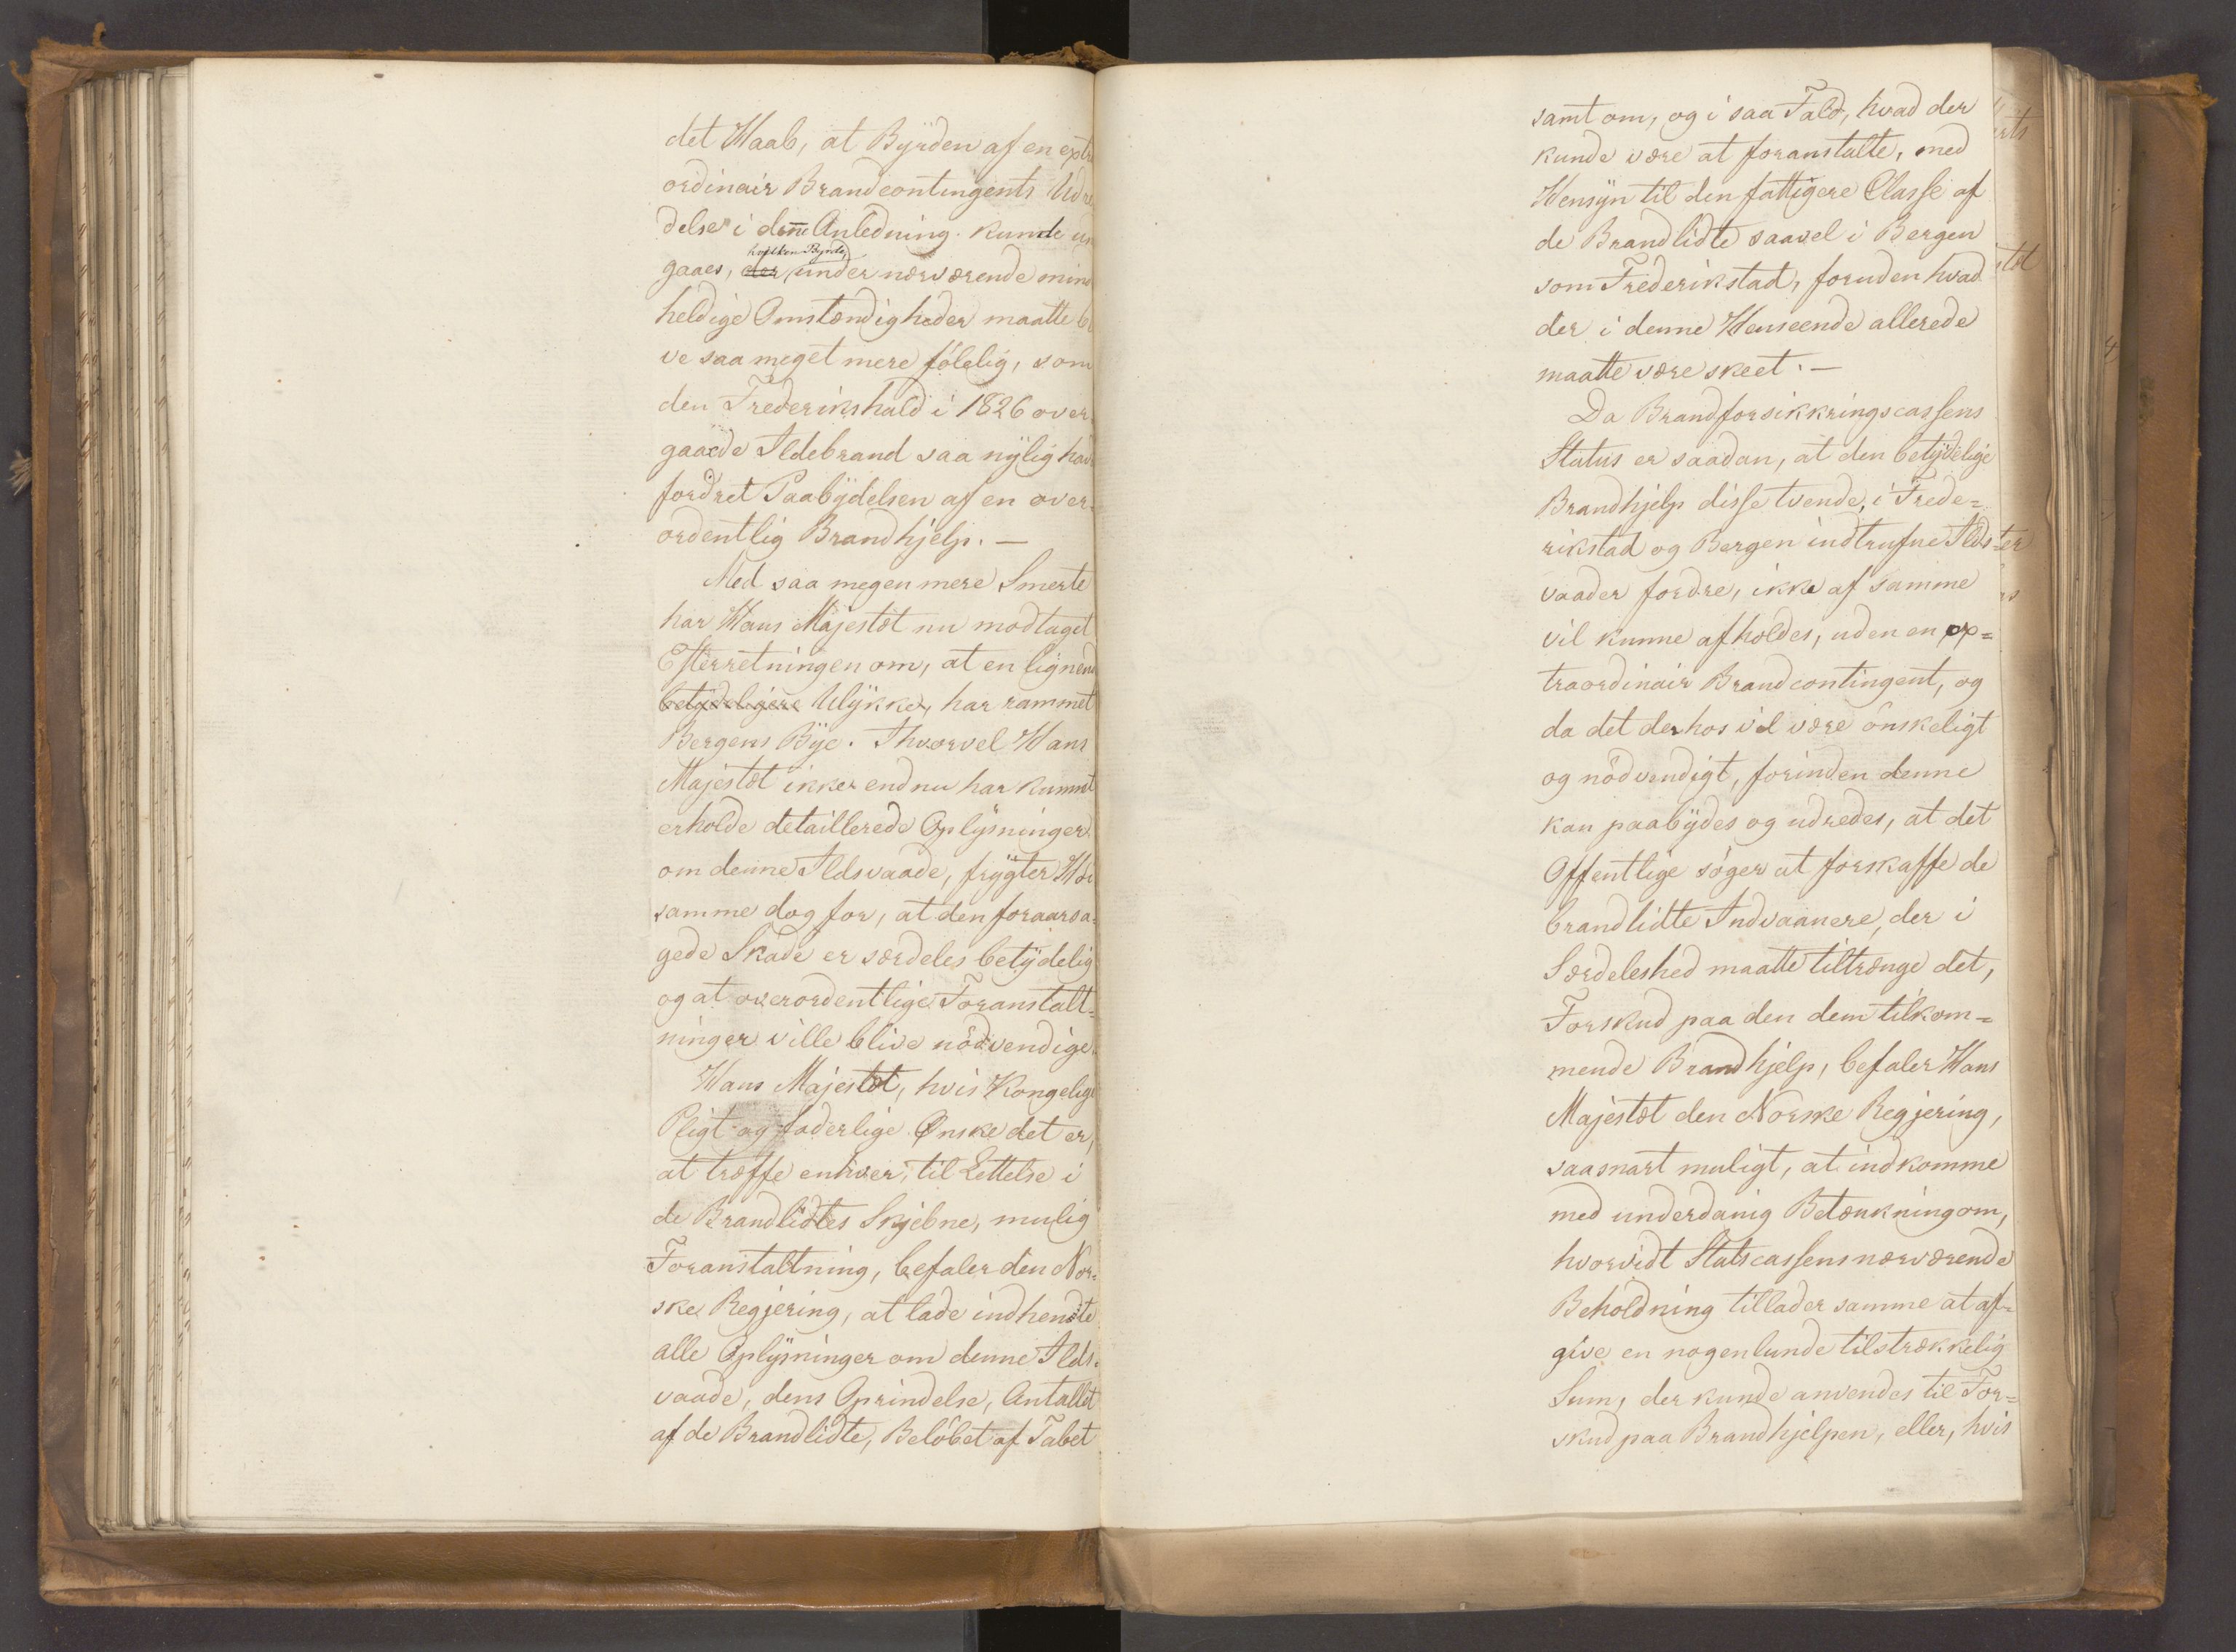 det Haab, at Byrden af en extra
ordinair Brandcontingents Udre
delse i denne Anledning kunde un
hvilken Byrde
gaaes, der under nærværende mind
heldige Omstændigheder maatte bl
ve saa meget mere følelig, som
den Frederikshald i 1826 over-
gaaede Ildebrand saa nylig havd
fordret Paabydelsen af en over-
ordentlig Brandhjelp. —
Med saa megen mere Smerte
har Hans Majestæt nu modtaget
Efterretningen om, at en lignend
betydeligere Ulykke, har rammet
Bergens Bye. Ihvorvel Hans
Majestæt ikke endnu har kunnet
erholde detaillerede Oplysninger
om denne Ildsvaade, frygter Høi
samme dog for, at den foraarsa-
gede Skade er særdeles betydelig
og at overordentlige Foranstalt-
ninger ville blive nødvendige.
Hans Majestæt, hvis Kongelige
Pligt og faderlige Ønske det er,
at træffe enhver, til Lettelse i
de Brandlidtes Skjebne, mulig
Foranstaltning, befaler den Nor-
ske Regjering, at lade indhendte
alle Oplysninger om denne Ilds-
vaade, dens Oprindelse, Antallet
af de Brandlidte, Beløbet af Tabet
samt om, og i saa Fald, hvad der
kunde være at foranstalte, med
Hensyn til den fattigere Classe af
de Brandlidte saavel i Bergen
som Frederikstad, foruden hvad
der i denne Henseende allerede
maatte være skeet. —
Da Brandforsikkringscassens
Status er saadan, at den betydelige
Brandhjelp disse tvende, i Frede=
rikstad og Bergen indtrufne Ilds-
vaader fordre, ikke af samme
vil kunne afholdes, uden en ex=
traordinair Brandcontingent, og
da det derhos vil være ønskeligt
og nødvendigt, forinden denne
kan paabydes og udredes, at det
Offentlige søger at forskaffe de
brandlidte Indvaanere, der i
Særdeleshed maatte tiltrænge det,
Forskud paa den dem tilkom=
mende Brandhjelp, befaler Hans
Majestæt den Norske Regjering,
saasnart muligt, at indkomme
med underdanig Betænkning om,
hvorvidt Statscassens nærværende
Beholdning tillader samme at af-
give en nogenlunde tilstrækkelig
Sum, der kunde anvendes til For=
skud paa Brandhjelpen, eller, hvis